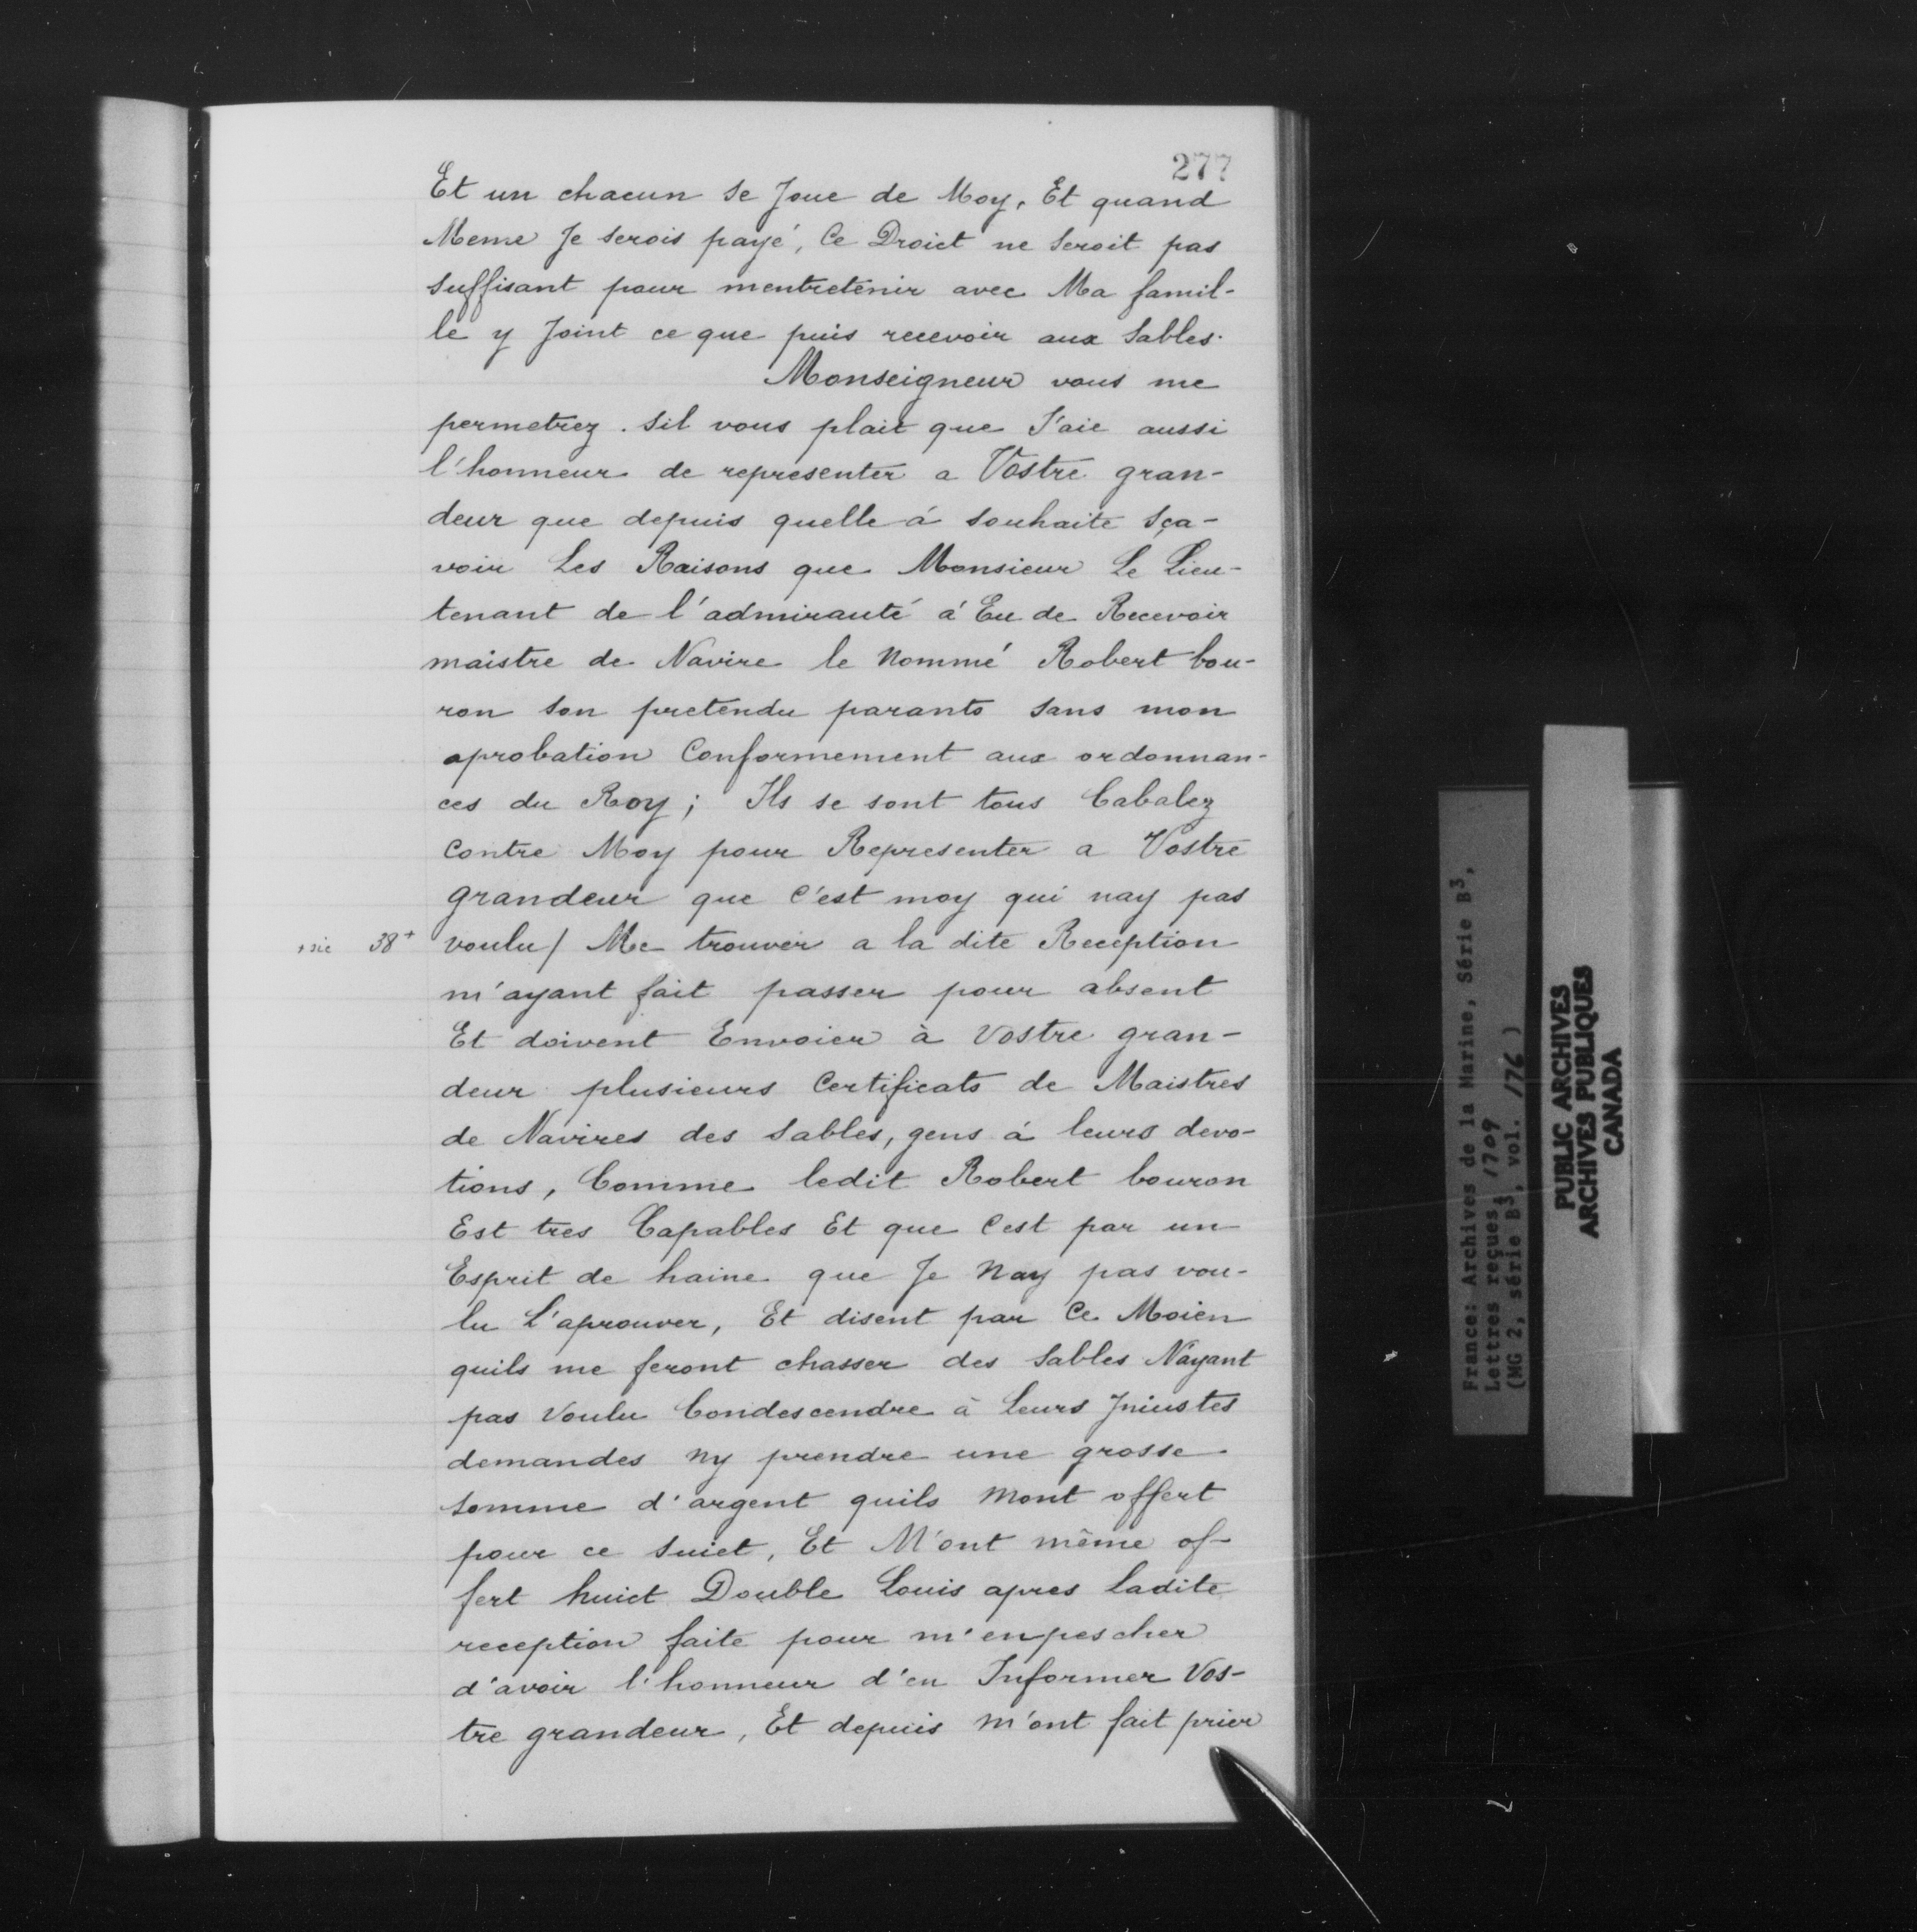 277
Et un chacun se Joue de Moy, Et quand
Meme Je serois payé, Ce Droict ne seroit pas
suffisant pour mentretenir avec Ma famil-
le y Joint ce que puis recevoir aux Sables.
Monseigneur vous me
permetrez . sil vous plait que J'aie aussi
l'honneur de representer a Vostre gran-
deur que depuis quelle á souhaite sça-
voir Les Raisons que Monsieur Le Lieu-
tenant de l'admirauté á Eu de Recevoir
maistre de Navire le Nommé Robert bou-
ron son pretendu parants sans mon
aprobation Conformement aux ordonnan-
ces du Roy; Ils se sont tous Cabalez
Contre Moy pour Representer a Vostre
grandeur que C'est moy qui nay pas
+ sic 38+ voulu/ Me trouver a la dite Reception
m'ayant fait passer pour absent
Et doivent Envoier à Vostre gran-
deur plusieurs Certificats de Maistres
de Navires des Sables, gens á leurs devo-
tions, Comme ledit Robert bouron
Est tres Capables Et que Cest par un
Esprit de haine que Je Nay pas vou-
lu L'aprouver, Et disent par Ce Moien
quils me feront chasser des Sables N'ayant
pas Voulu Condescendre à Leurs Iniustes
demandes ny prendre une grosse
somme d'argent quils Mont offert
pour ce suiet, Et M'ont même of-
fert huict Double Louis apres ladite
reception faite pour m'enpescher
d'avoir l'honneur d'en Informer Vos-
tre grandeur, Et depuis M'ont fait prier
France: Archives de la Marine, Série B3,
Lettres reçues, 1709
(MG 2, série B3, vol. 176 )
PUBLIC ARCHIVES
ARCHIVES PUBLIQUES
CANADA